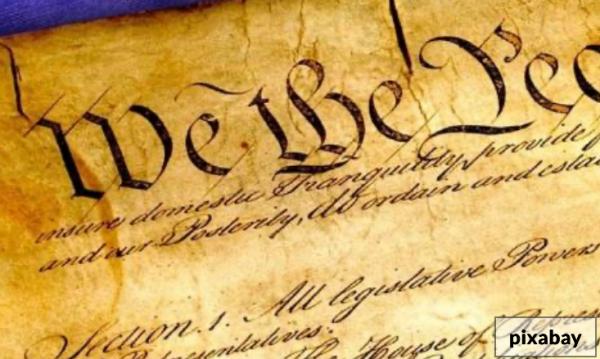 We the Peo
insure domestic Tranquility, provide
and our Posterity, do ordain and esta
Section. 1. All legislative Powers
Representatives.
House of Repres
pixabay